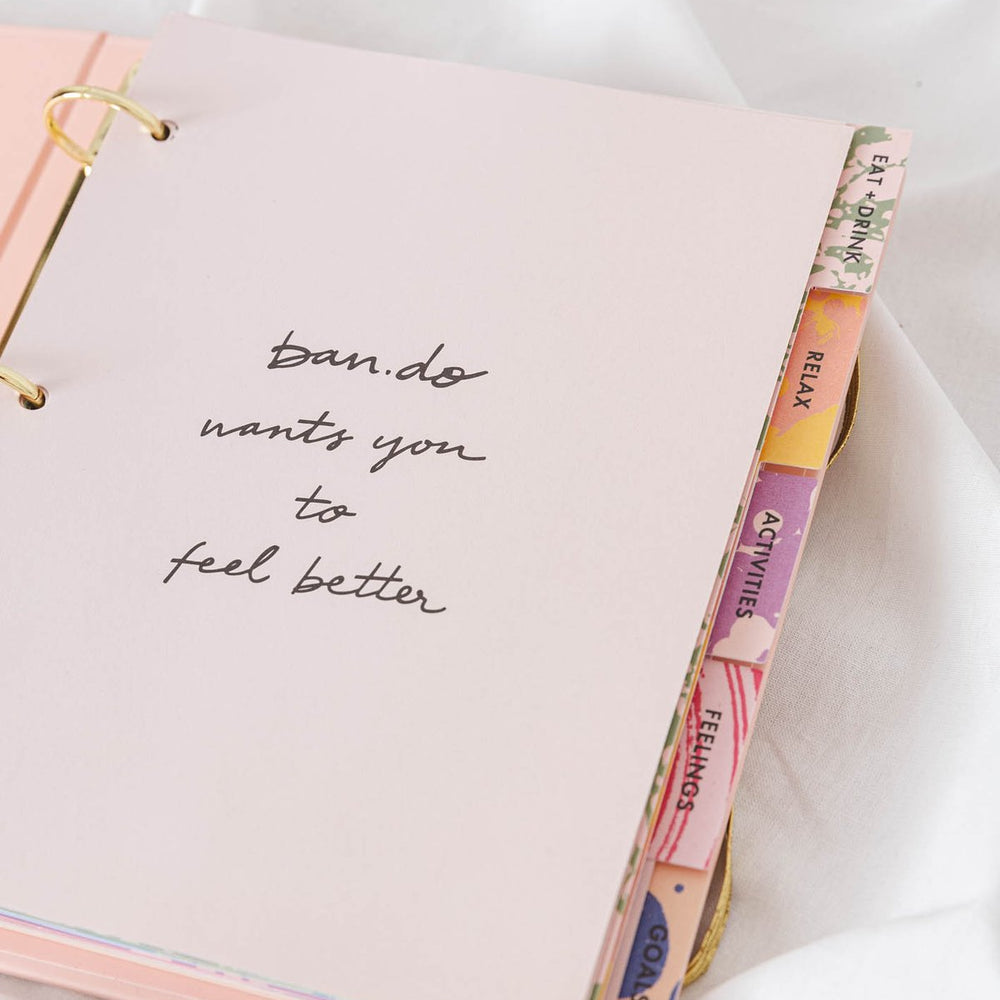 ban.do
wants you
to
feel better
EAT + DRINK
RELAX
ACTIVITIES
FEELINGS
GOALS